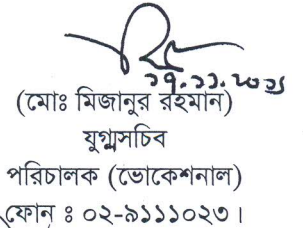 ২৭.১১.২০২১
(মোঃ মিজানুর রহমান)
যুগ্মসচিব
পরিচালক (ভোকেশনাল)
ফোন ঃ ০২-৯১১১০২৩।